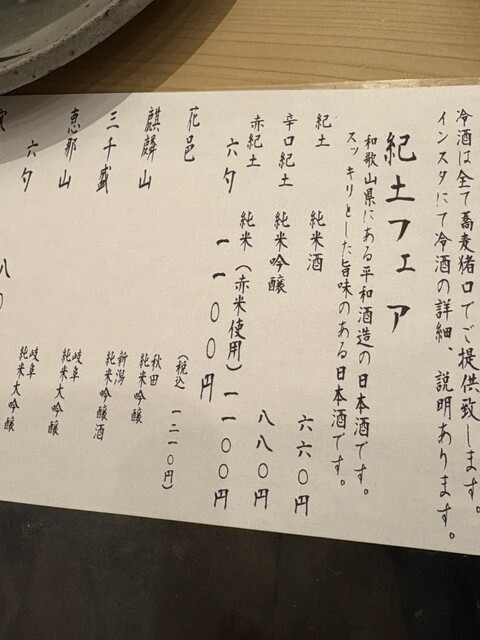 冷酒は全て蕎麦猪口でご提供致します。
インスタにて冷酒の詳細、説明あります。
紀土フェア
和歌山県にある平和酒造の日本酒です。
スッキリとした旨味のある日本酒です。
紀土 純米酒 六六〇円
辛口紀土 純米吟醸 八八〇円
赤紀土 純米(赤米使用) 一一〇〇円
六勺 一一〇〇円
(税込 一二一〇円)
花邑 秋田 純米吟醸
麒麟山 新潟 純米吟醸酒
三千盛 岐阜 純米大吟醸
恵那山 岐阜 純米大吟醸
六勺 八〇